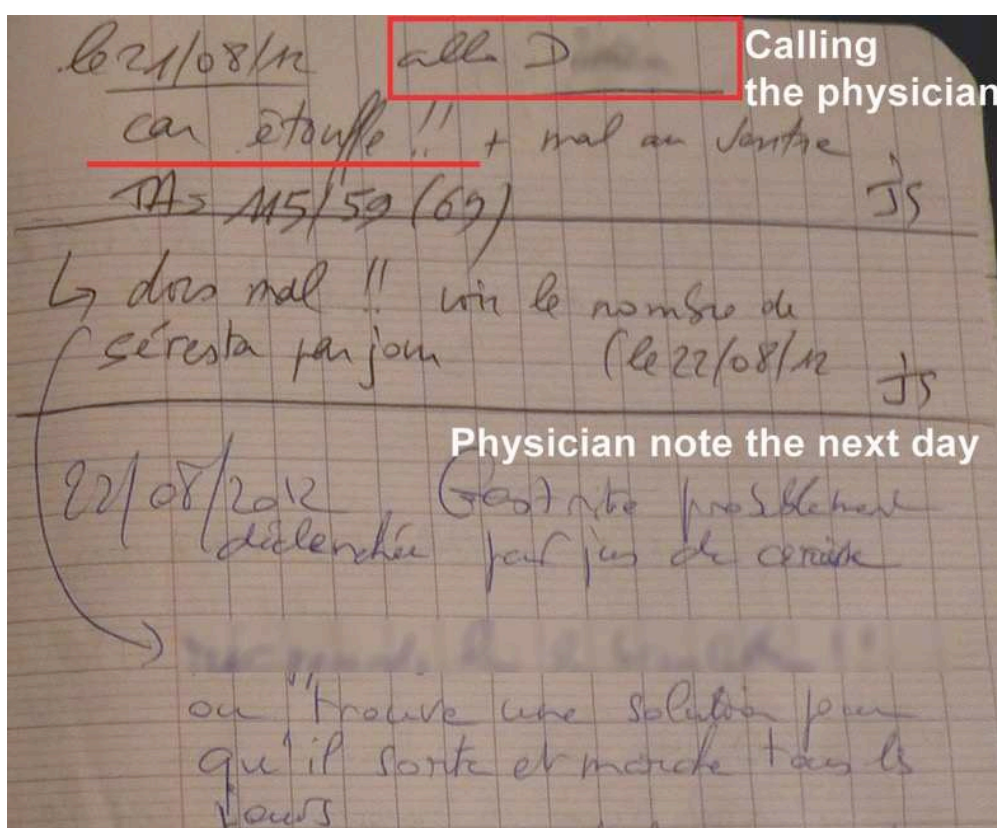 le 21/08/12 alla D
Calling
the physician
car étouffe !! + mal au ventre
TA = 115/59 (69) JS
↳ dors mal !! voir le nombre de
séresta par jour (le 22/08/12 JS
Physician note the next day
22/08/2012 Gastrite probablement
déclenchée par jus de cerise
on trouve une solution pour
qu'il sorte et marche tous les
jours